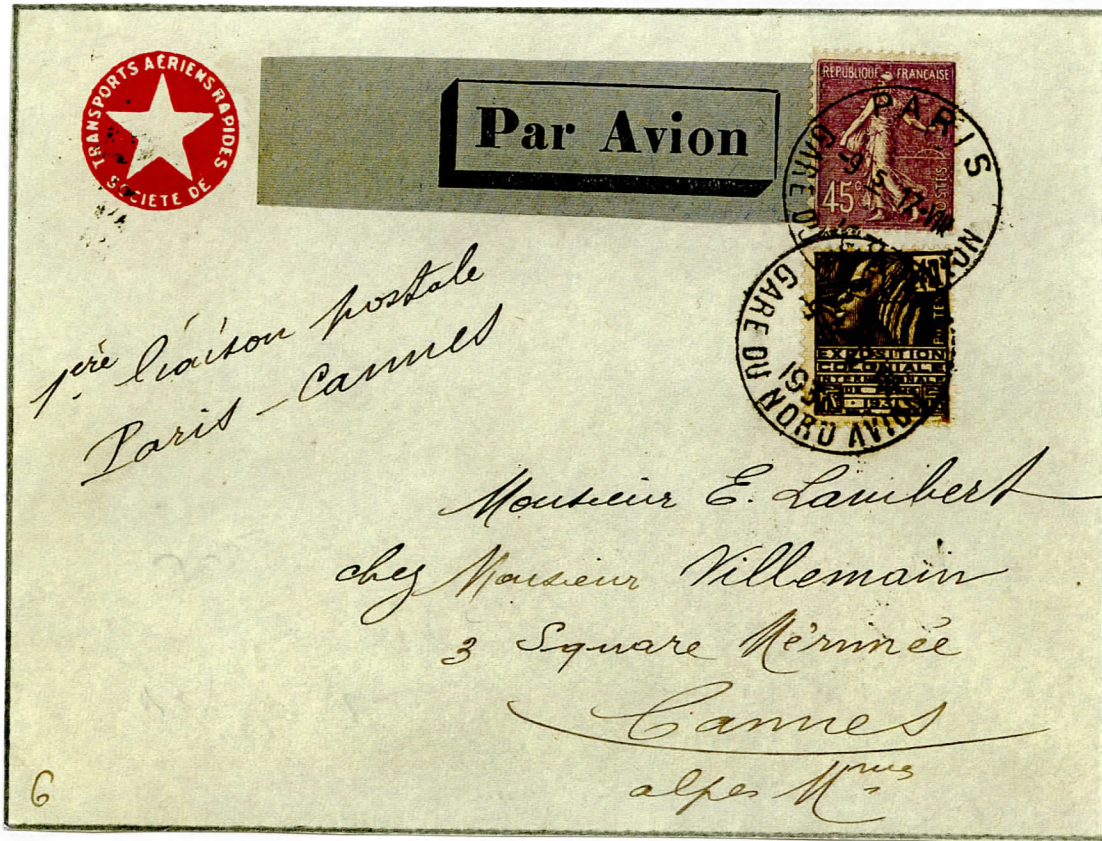 SOCIÉTÉ DE TRANSPORTS AÉRIENS RAPIDES
Par Avion
RÉPUBLIQUE FRANÇAISE
45c
POSTES
PARIS
GARE DU NORD AVION
EXPOSITION
COLONIALE
INTERNATIONALE
1931
GARE DU NORD AVION
1ère liaison postale
Paris - Cannes
Monsieur E. Lambert
chez Monsieur Villemain
3 Square Mérimée
Cannes
alpes Mmes
6